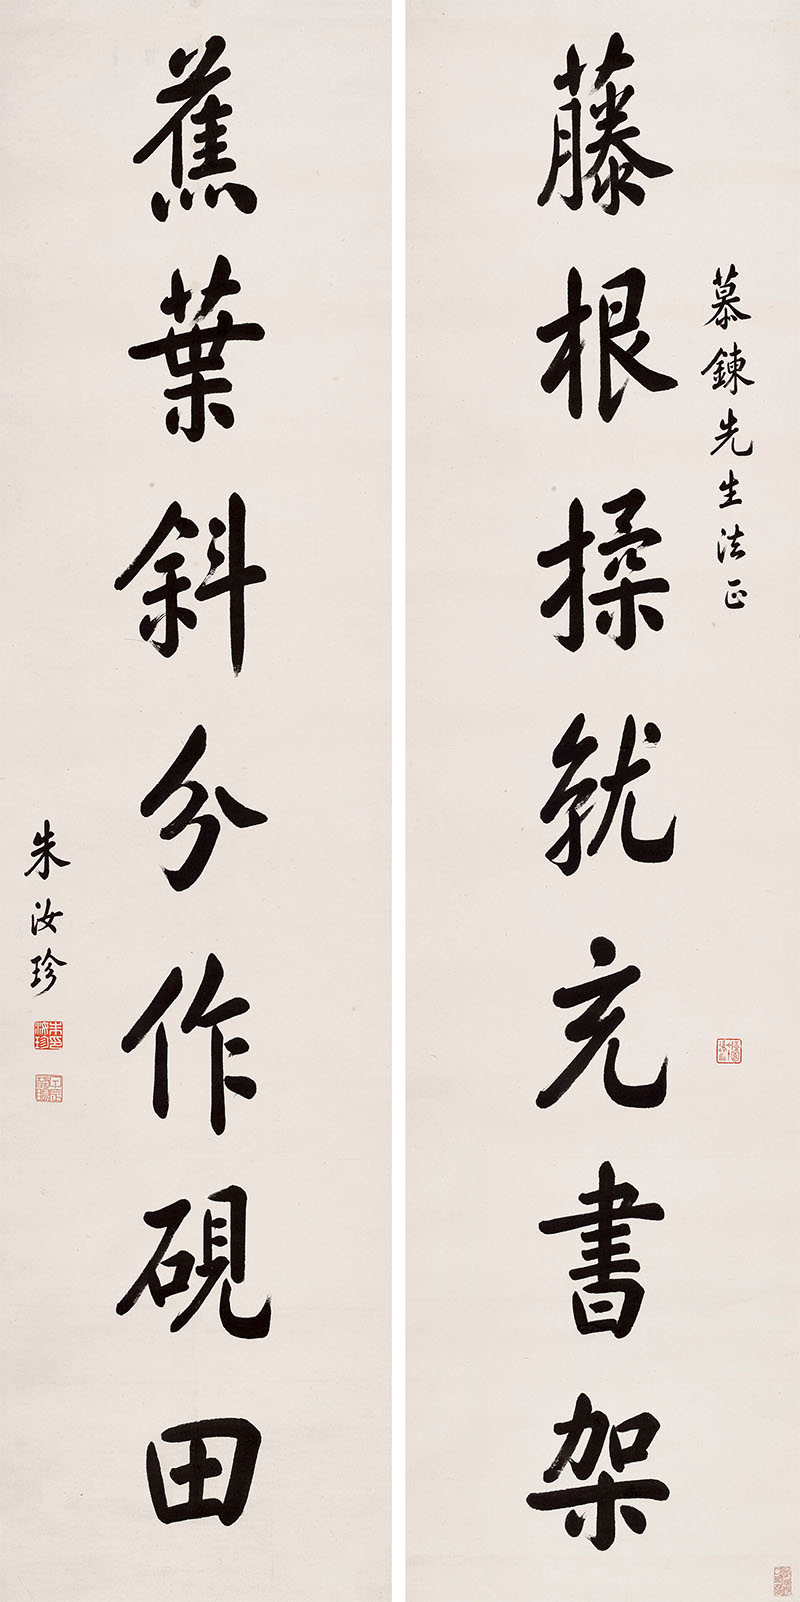 慕鍊先生法正
藤根揉就充書架
蕉葉斜分作硯田
朱汝珍
朱印汝珍